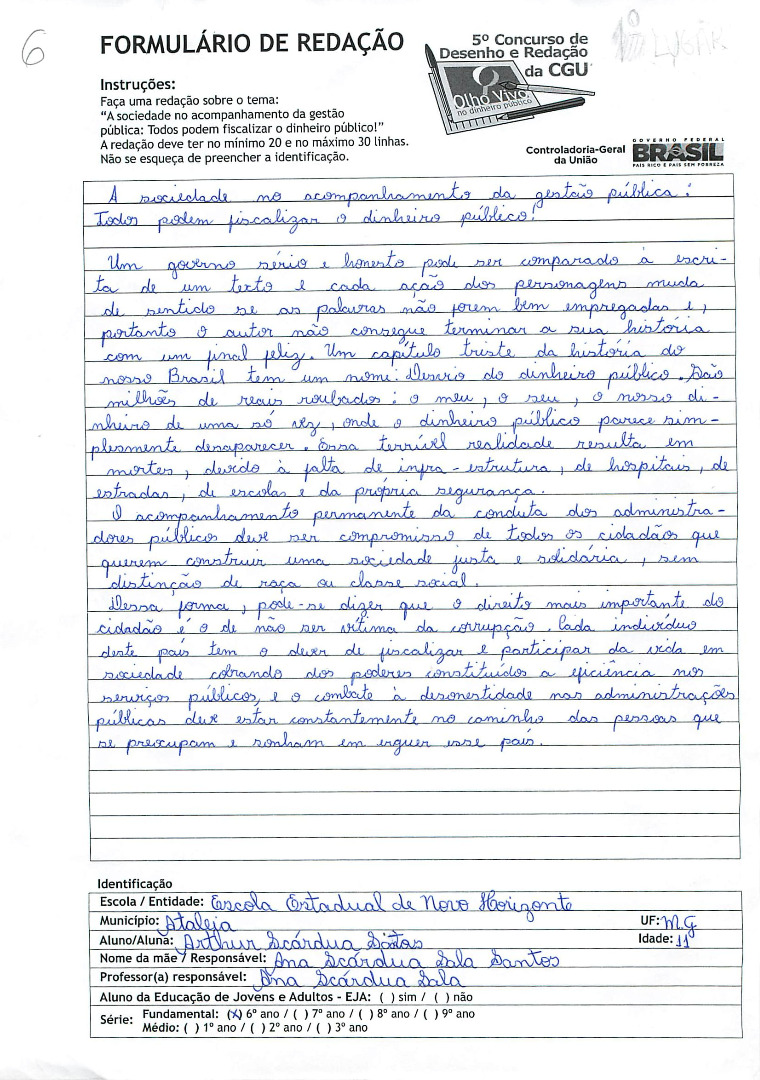 6
FORMULÁRIO DE REDAÇÃO
5º Concurso de
Desenho e Redação
da CGU
1º LUGAR
Olho Vivo
no dinheiro público
Instruções:
Faça uma redação sobre o tema:
“A sociedade no acompanhamento da gestão
pública: Todos podem fiscalizar o dinheiro público!”
A redação deve ter no mínimo 20 e no máximo 30 linhas.
Não se esqueça de preencher a identificação.
Controladoria-Geral
da União
GOVERNO FEDERAL
BRASIL
PAÍS RICO É PAÍS SEM POBREZA
A sociedade no acompanhamento da gestão pública:
Todos podem fiscalizar o dinheiro público!
Um governo sério e honesto pode ser comparado à escri-
ta de um texto e cada ação dos personagens muda
de sentido se as palavras não forem bem empregadas e,
portanto o autor não consegue terminar a sua história
com um final feliz. Um capítulo triste da história do
nosso Brasil tem um nome: Desvio do dinheiro público. São
milhões de reais roubados: o meu, o seu, o nosso di-
nheiro de uma só vez, onde o dinheiro público parece sim-
plesmente desaparecer. Essa terrível realidade resulta em
mortes, devido à falta de infra-estrutura, de hospitais, de
estradas, de escolas e da própria segurança.
O acompanhamento permanente da conduta dos administra-
dores públicos deve ser compromisso de todos os cidadãos que
querem construir uma sociedade justa e solidária, sem
distinção de raça ou classe social.
Dessa forma, pode-se dizer que o direito mais importante do
cidadão é o de não ser vítima da corrupção. Cada indivíduo
deste país tem o dever de fiscalizar e participar da vida em
sociedade cobrando dos poderes constituídos a eficiência nos
serviços públicos, e o combate à desonestidade nas administrações
públicas deve estar constantemente no caminho das pessoas que
se preocupam e sonham em erguer esse país.
Identificação
Escola / Entidade: Escola Estadual de Novo Horizonte
Município: Ataleia UF: M.G
Aluno/Aluna: Arthur Scárdua Santos Idade: 11
Nome da mãe / Responsável: Ana Scárdua Sala Santos
Professor(a) responsável: Ana Scárdua Sala
Aluno da Educação de Jovens e Adultos - EJA: ( ) sim / ( ) não
Série: Fundamental: (X) 6º ano / ( ) 7º ano / ( ) 8º ano / ( ) 9º ano
Médio: ( ) 1º ano / ( ) 2º ano / ( ) 3º ano